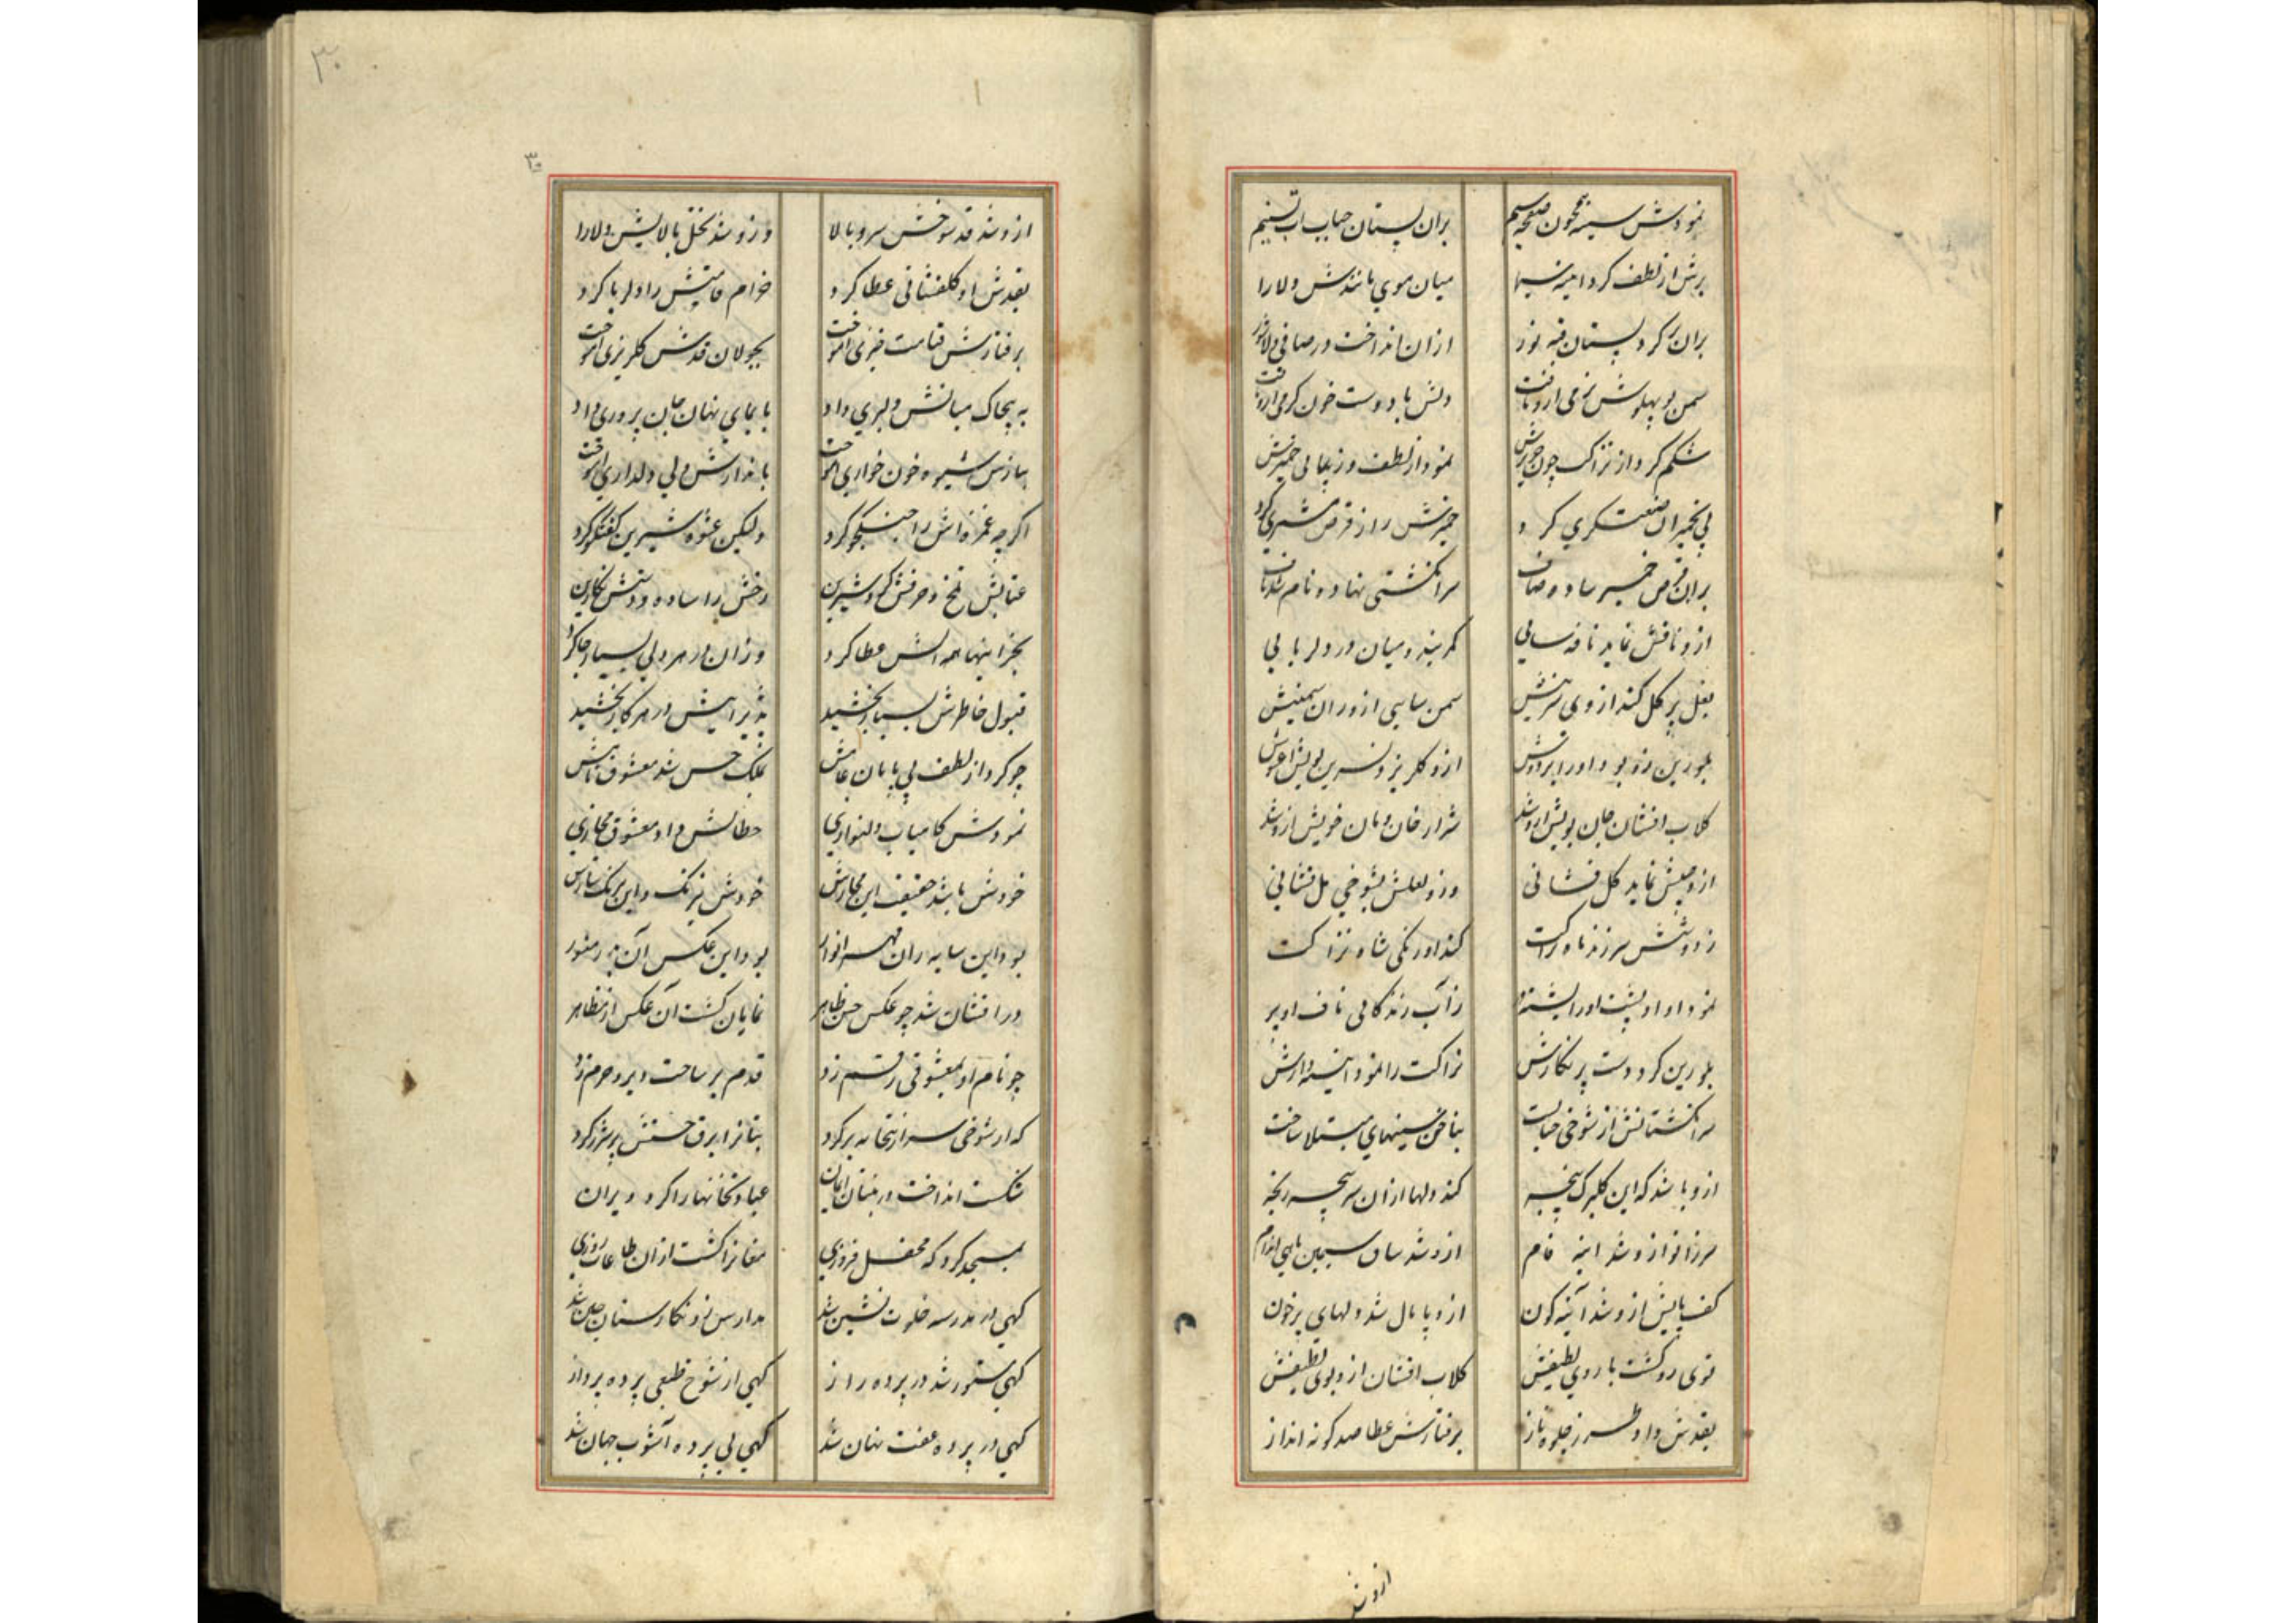 نمودش سینه همچون صفحه سیم بران پستان حباب آب تسنیم
برش از لطف کرد آینه سیما میان موی مانندش دلارا
بران بر کرد پستان قبه نور ازان انداخت در صافی دلا شور
سمن بو پهلوش نرمی ازو یافت دلش با دوست خون گرمی ازو یافت
شکم کرد از نزاکت چون نمود از لطف و زیبایی خمیرش
پی خمیر آن صنعتگری کرد خمیرش را ز قرص مشتری کرد
بران قرص خمیر ساده و صاف سر انگشتی نهاد و نام شد ناف
ازو نافش نماید نافه سایی کمر بندد میان در دلربایی
بغل پر گل کند از وی سرینش سمن سایی ازو ران سمینش
بلورین زو بود او را بر و دوش ازو گلریز و نسرین بویش آغوش
گلاب افشان جان بویش ازو شد شرار خان و مان خویش ازو شد
ازو جیبش نماید گل فشانی وزو لعلش بشوخی مل فشانی
ز دوشش سر زند ماه نزاکت کند اورنگی شاه نزاکت
نمود او او پشت او را ز آب زندگانی ناف او پر
بلورین کرد دست پر نگارش نزاکت را نمود آینه دارش
سر انگشتانش از شوخی بناخن سینهای مبتلا ساخت
ازو باشد که این گلبرگ پنجه کند دلها ازان سرپنجه رنجه
سر زانو ازو شد آینه فام ازو شد ساق سیمین ماهی اندام
کف پایش ازو شد آینه گون ازو پامال شد دلهای پر خون
قوی رو گشت با روی لطیفش گلاب افشان ازو بوی لطیفش
بقدش داد طرز جلوه ناز برفتارش عطا صد گونه انداز
ازو شد
۳۰
۳۰
ازو شد قد شوخش سرو بالا وزو شد نخل بالایش دلارا
بقدش او گلفشانی عطا کرد خرام قامتش را دلربا کرد
برفتارش قیامت خیزی آموخت بجولان قدش گلریزی آموخت
به پیچاک میانش دلبری داد بایمای نهان جان پروری داد
بنازش شیوه خون خواری آموخت باندازش ولی دلداری آموخت
اگرچه غمزه اش را جنگجو کرد ولیکن عشوه شیرین گفتگو کرد
عتابش تلخ و حرفش کرد شیرین رخش را ساده و دستش نگارین
بجز اینها همه الش عطا کرد وزان در هر دلی بسیار جا کرد
قبول خاطرش بسیار بخشید پذیراییش در هر کار بخشید
چو کرد از لطف بی پایان عامش بملک حسن شد معشوق نامش
نمودش کامیاب دلنوازی خطابش داد معشوق مجازی
خودش باشد حقیقت این مجازش خودش نیرنگ و این نیرنگ سازش
بود این سایه زان مهر انوار بود این عکس آن بدر منور
در افشان شد چو عکس حسن ظاهر نمایان گشت آن عکس از مظاهر
چو نام او بمعشوقی رقم زد قدم بر ساحت دیر و حرم زد
که از شوخی سر از بتخانه بر کرد بتانرا برق حسنش پر شرر کرد
شکست انداخت در بنیان ایمان عبادتخانها را کرد ویران
بمسجد کرد که محفل فروزی مغانرا گشت ازان طاعات روزی
گهی در مدرسه خلوت نشین شد مدارس زو نگارستان چین شد
گهی مستور شد در پرده راز گهی از شوخ طبعی پرده پرداز
گهی در پرده عفت نهان شد گهی بی پرده آشوب جهان شد